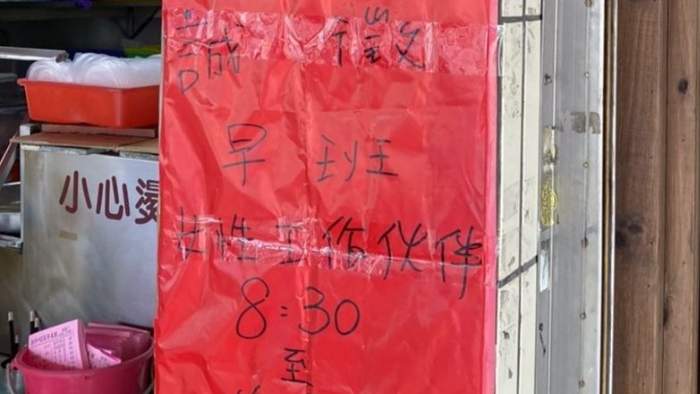 誠徵
早班
女性工作伙伴
8:30
至
小心燙